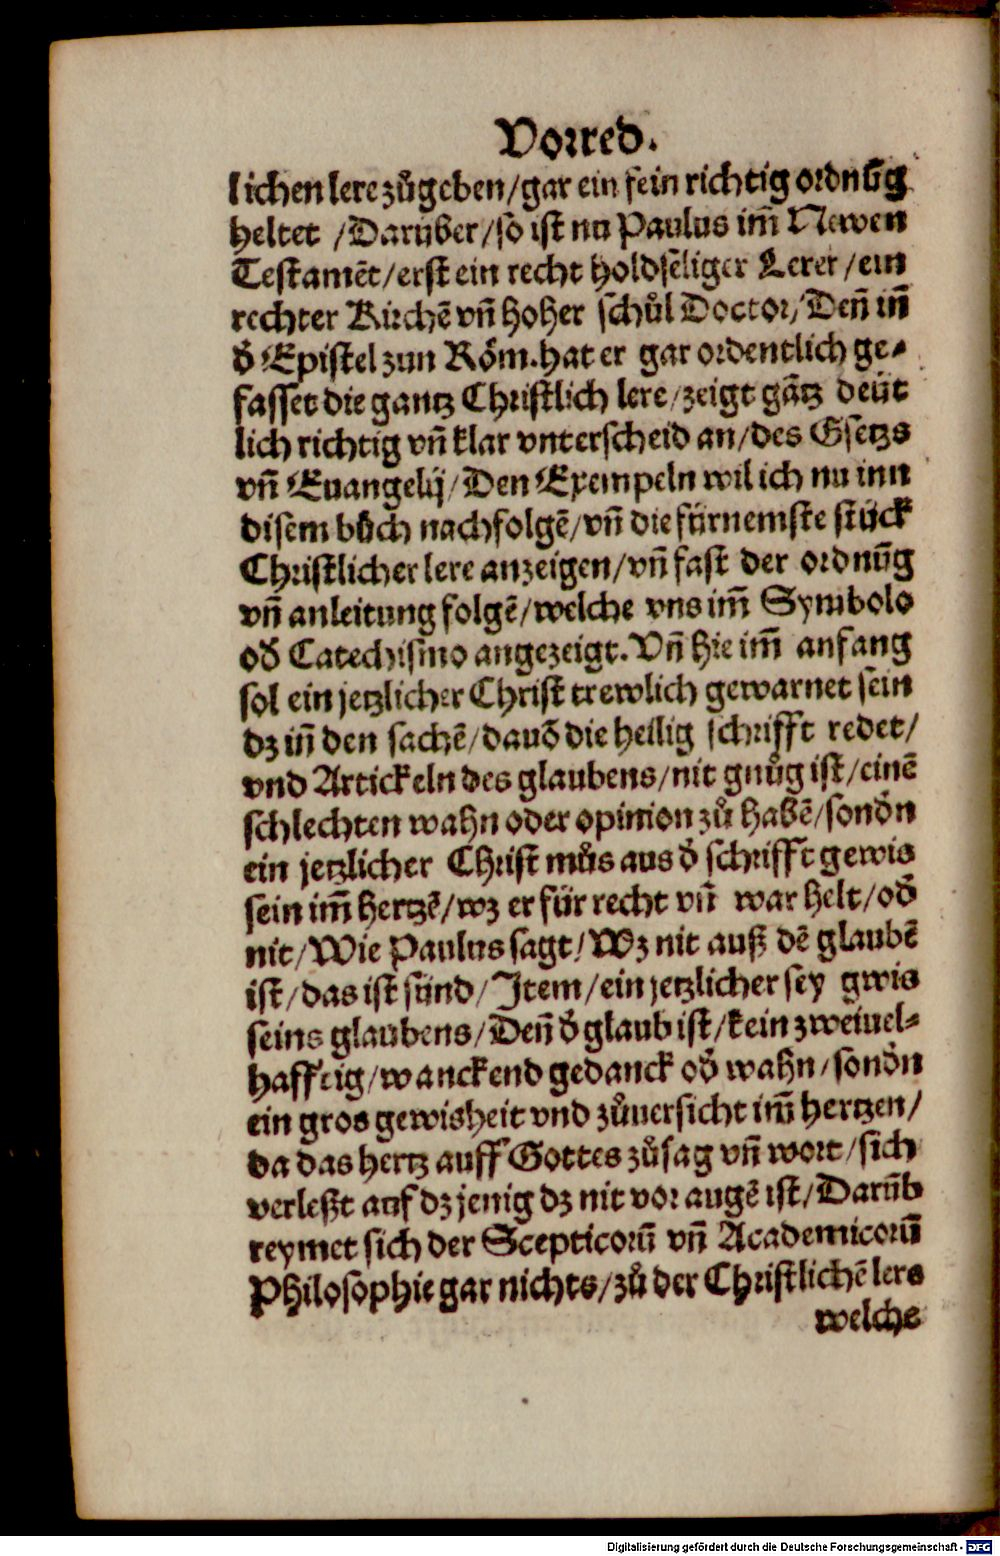 Vorred.
lichen lere zůgeben/gar ein fein richtig ordnūg
heltet /Darüber/so ist nu Paulus im̃ Newen
Testamēt/erst ein recht holdseliger Lerer/ein
rechter Kirchē vñ hoher schůl Doctor/Deñ iñ
d̓ Epistel zun Röm. hat er gar ordentlich ge-
fasset die gantz Christlich lere/zeigt gātz deüt
lich richtig vñ klar vnterscheid an/des Gsetzs
vñ Euangelij/Den Exempeln wil ich nu inn
disem bůch nachfolgē/vñ die fürnemste stück
Christlicher lere anzeigen/vñ fast der ordnūg
vñ anleitung folgē/welche vns im̃ Symbolo
od̓ Catechismo angezeigt. Vñ hie im̃ anfang
sol ein jetzlicher Christ trewlich gewarnet sein
dz iñ den sachē/dauō die heilig schrifft redet/
vnd Artickeln des glaubens/nit gnůg ist/einē
schlechten wahn oder opinion zů habē/sond̓n
ein jetzlicher Christ můs aus d̓ schrifft gewis
sein im̃ hertzē/wz er für recht vñ war helt/od̓
nit/Wie Paulus sagt/Wz nit auß dē glaubē
ist/das ist sünd/Item/ein jetzlicher sey gwis
seins glaubens/Deñ d̓ glaub ist/kein zweiuel-
hafftig/wanckend gedanck od̓ wahn/sond̓n
ein gros gewisheit vnd zůuersicht im̃ hertzen/
da das hertz auff Gottes zůsag vñ wort/sich
verleßt auf dz jenig dz nit vor augē ist/Darūb
reymet sich der Scepticorū vñ Academicorū
Philosophie gar nichts/zů der Christlichē lere
welche
Digitalisierung gefördert durch die Deutsche Forschungsgemeinschaft - DFG